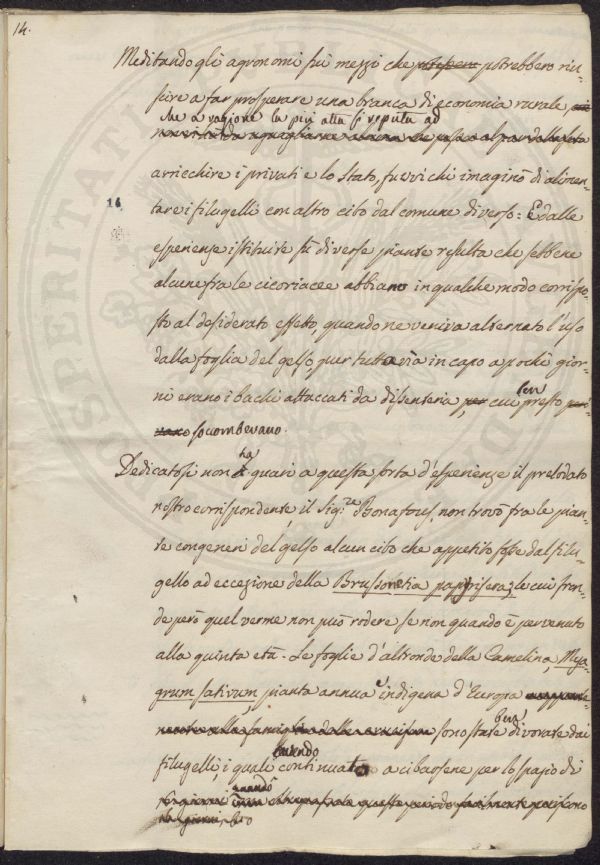 14.
Meditando gli agronomi sui mezzi che potrebbero riu-
scire a far prosperare una branca di economia rurale
che a ragione la più atta si reputa ad
arricchire i privati e lo Stato, fuvvi chi imaginò di alimen-
14
tare i filugelli con altro cibo dal comune diverso: E dalle
esperienze istituite sù diverse piante resulta che sebbene
alcune fra le cicoriacee abbiano in qualche modo corrispo-
sto al desiderato effetto, quando ne veniva alternato l'uso
dalla foglia del gelso, pur tuttavia in capo a pochi gior-
ni erano i bachi attaccati da dissenteria, cui ben presto
soccombevano.
Dedicatosi non ha guari a questa sorta d'esperienze il prelodato
nostro corrispondente, il Sig.re Bonafous, non trovò fra le pian-
te congeneri del gelso alcun cibo che appetito fosse dal filu-
gello ad eccezione della Brussonetia papirifera; le cui fron-
de però quel verme non può rodere se non quando è pervenuto
alla quinta età. Le foglie d'altronde della Camelina, Mya-
grum sativum, pianta annua indigena d'Europa
sono state ben divorate dai
filugelli, i quali continuando a cibarsene per lo spazio di